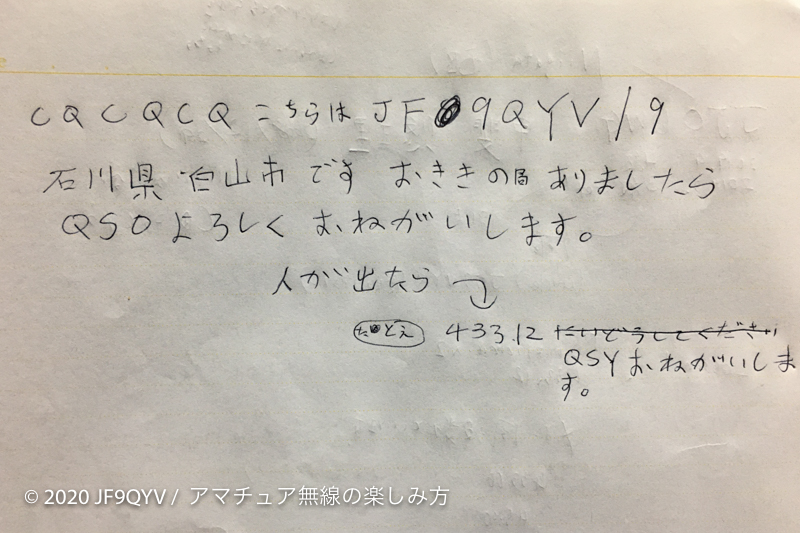 CQCQCQ こちらは JF9QYV/9
石川県 白山市 です おききの局 ありましたら
QSOよろしく おねがいします。
人が出たら
たとえ 433.12 にいどうしてください
QSYおねがいしま
す。
© 2020 JF9QYV / アマチュア無線の楽しみ方